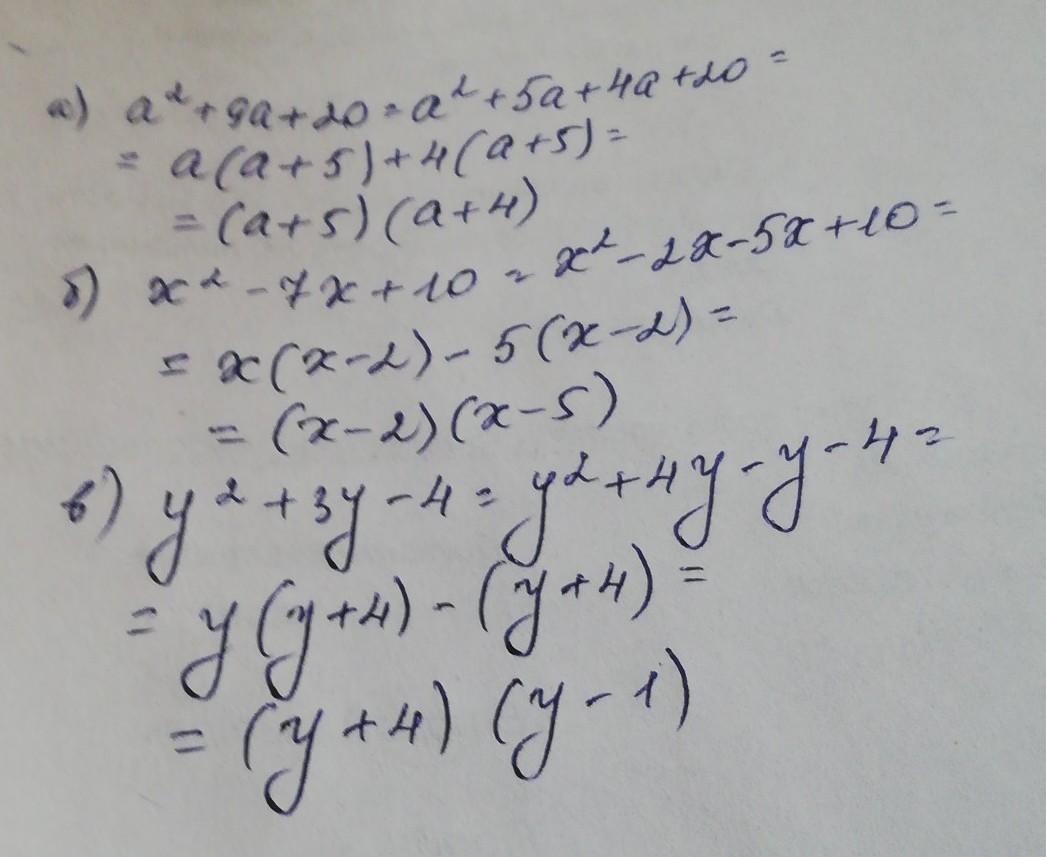 а) a² + 9a + 20 = a² + 5a + 4a + 20 =
= a(a + 5) + 4(a + 5) =
= (a + 5)(a + 4)
б) x² - 7x + 10 = x² - 2x - 5x + 10 =
= x(x - 2) - 5(x - 2) =
= (x - 2)(x - 5)
в) y² + 3y - 4 = y² + 4y - y - 4 =
= y(y + 4) - (y + 4) =
= (y + 4)(y - 1)